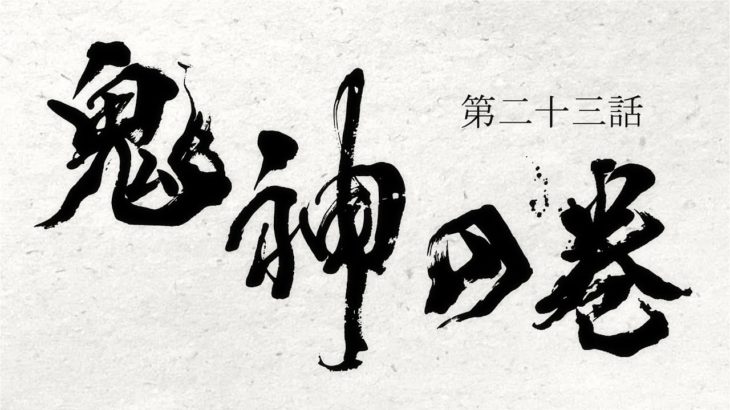 第二十三話
鬼神の巻